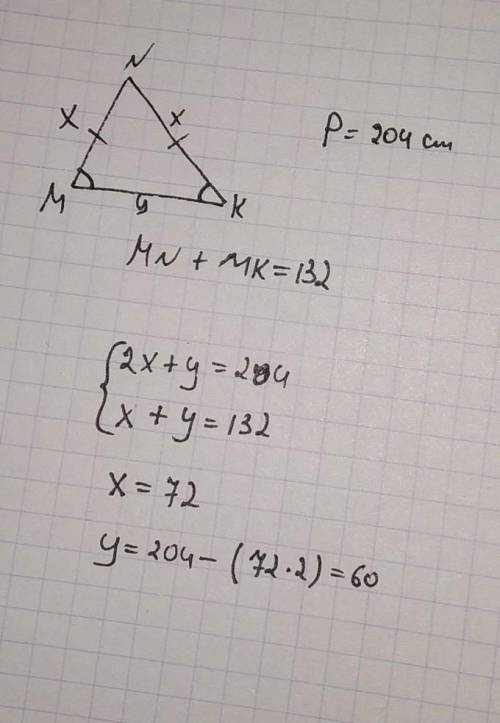 N
X x
M y K
P = 204 см
MN + MK = 132
2x + y = 204
x + y = 132
x = 72
y = 204 - (72·2) = 60